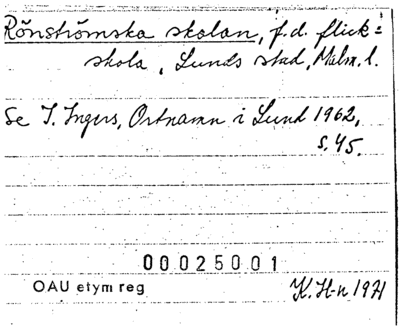 Rönströmska skolan, f.d. flick=
skola, Lunds stad, Malm. l.
Se I. Ingers, Ortnamn i Lund 1962,
s. 45.
00025001
OAU etym reg
K. H-n 1971